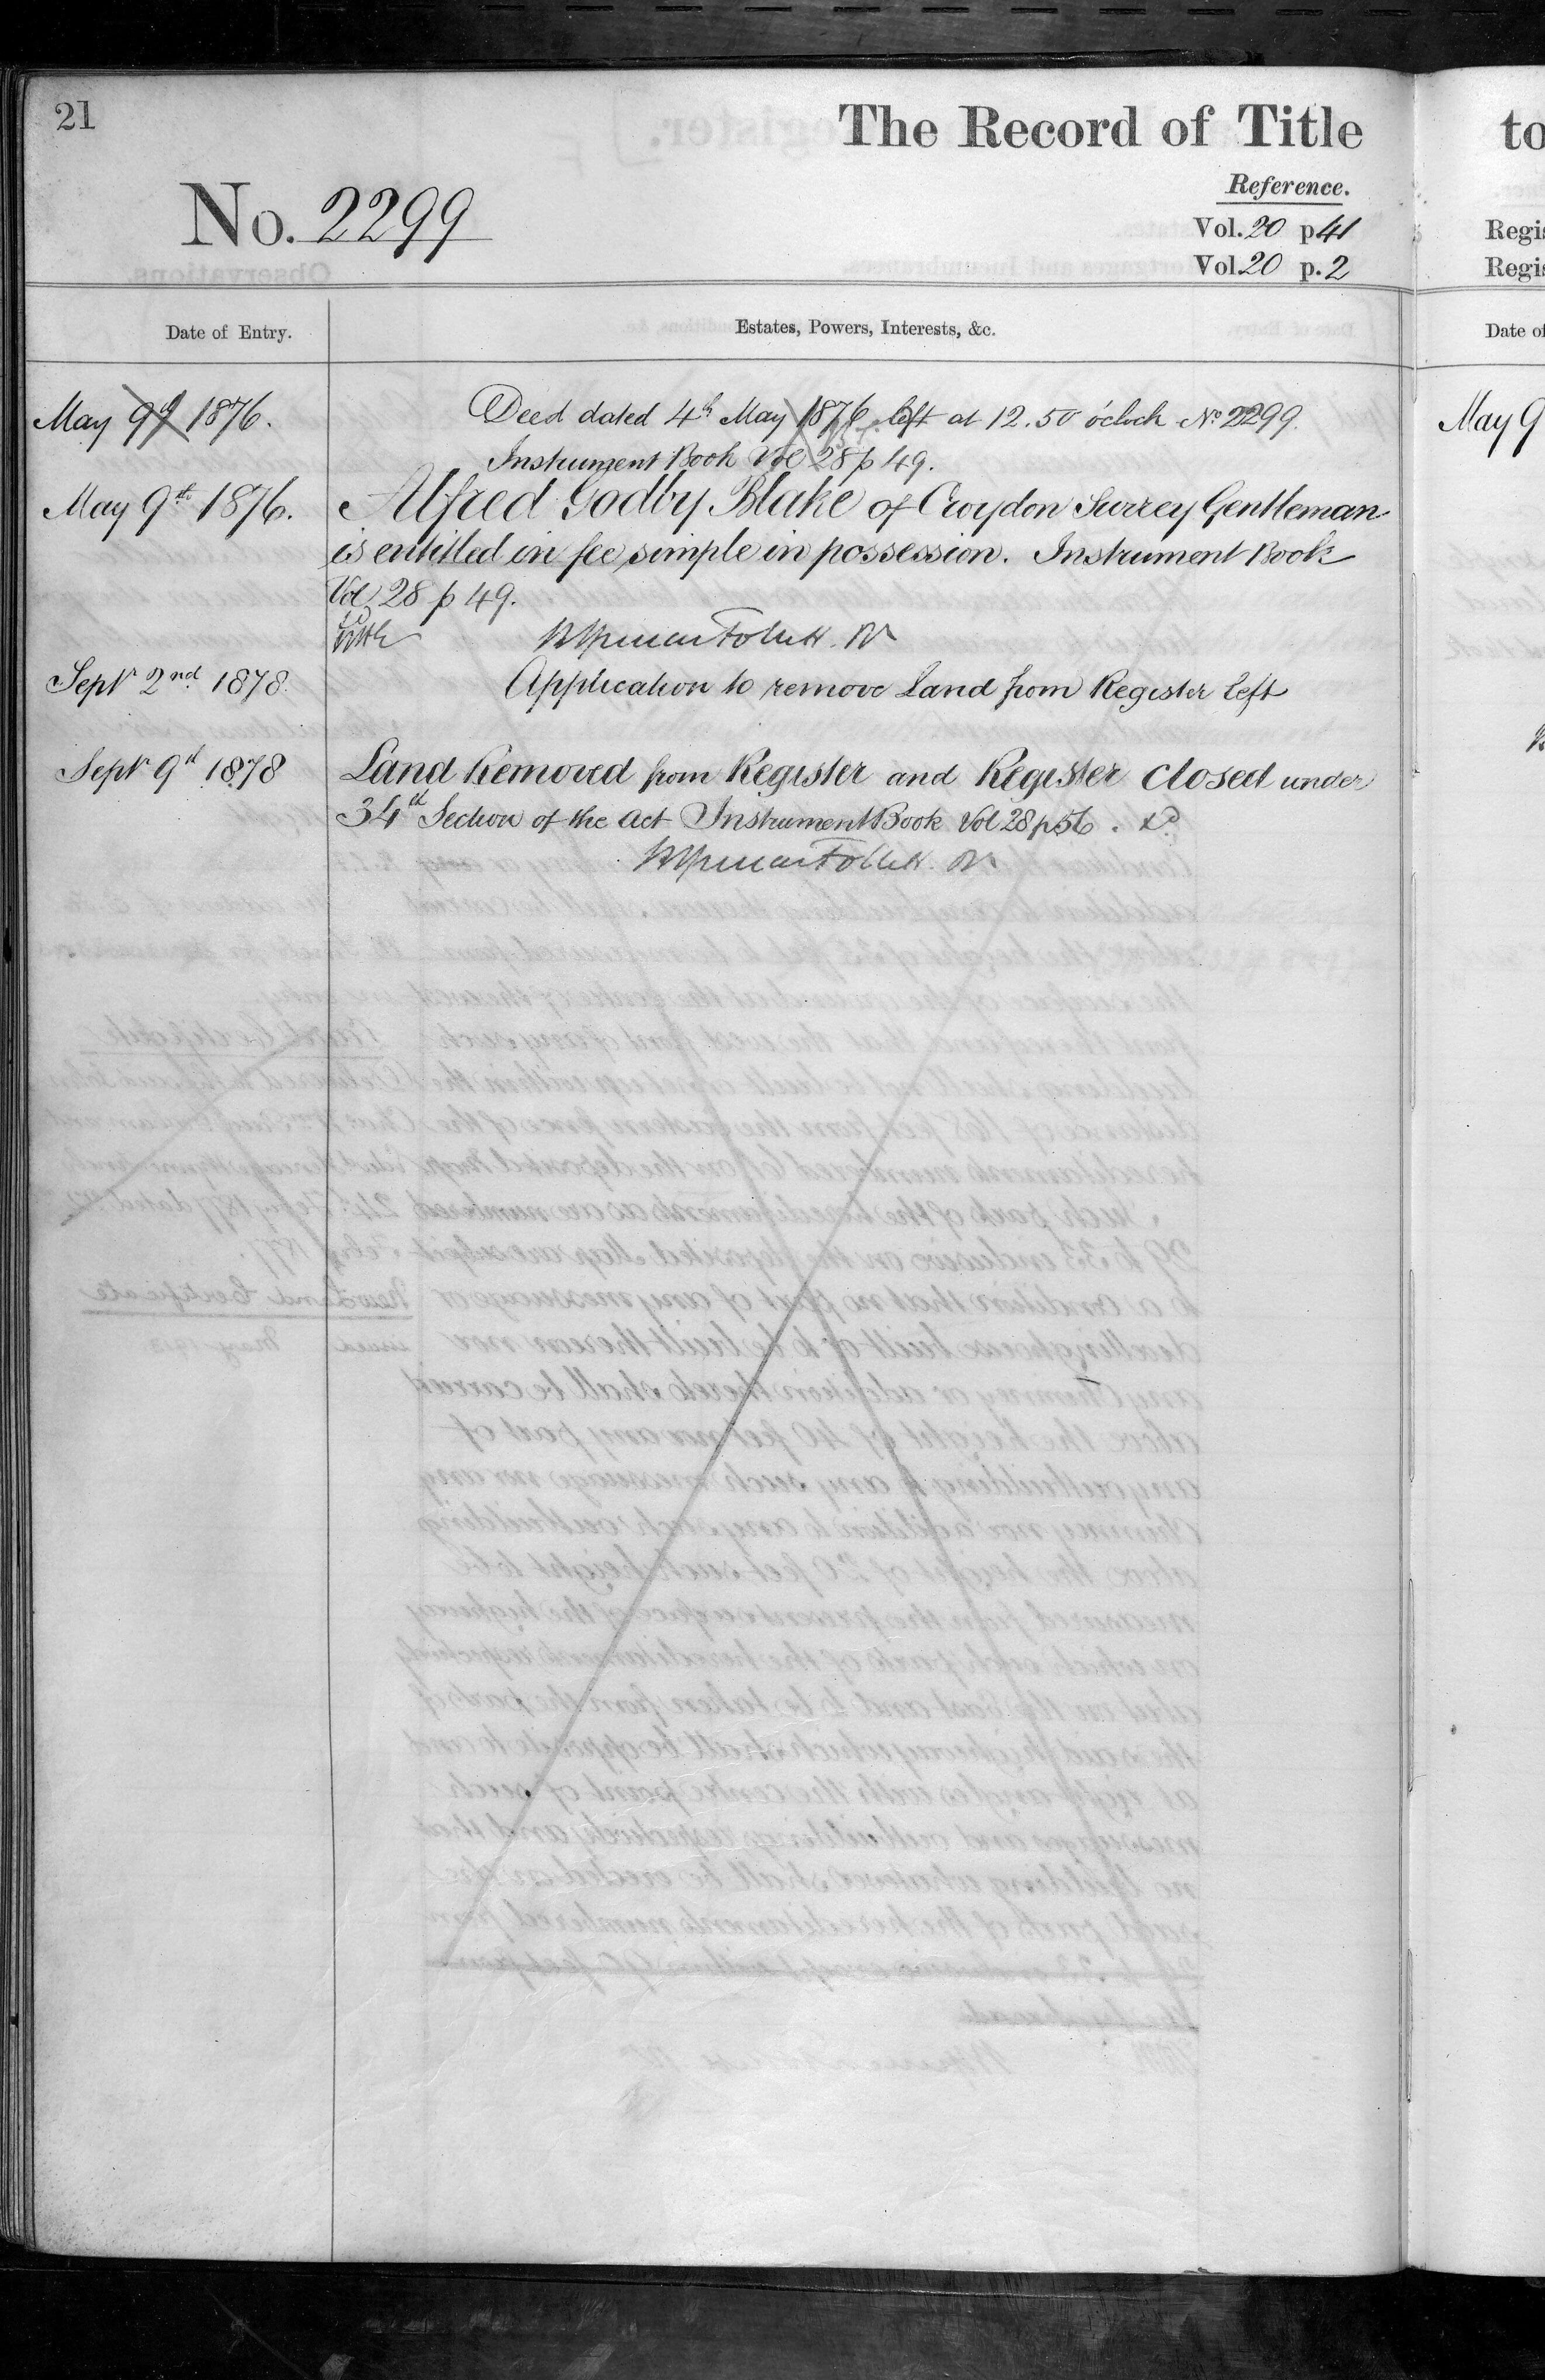 21
The Record of Title
to
Reference.
No. 2299
Vol. 20 p 41
Regis
Vol. 20 p. 2
Regis
Date of Entry.
Estates, Powers, Interests, &c.
Date of
May 9th 1876.
Deed dated 4th May 1876 left at 12.50 o'clock No 2299.
May 9
Instrument Book Vol 28 p 49.
May 9th 1876.
Alfred Godby Blake of Croydon Surrey Gentleman
is entitled in fee simple in possession. Instrument Book
Vol 28 p 49.
Sept 2nd 1878.
Application to remove Land from Register left
Sept 9th 1878
Land Removed from Register and Register closed under
34th Section of the Act Instrument Book Vol 28 p 56.